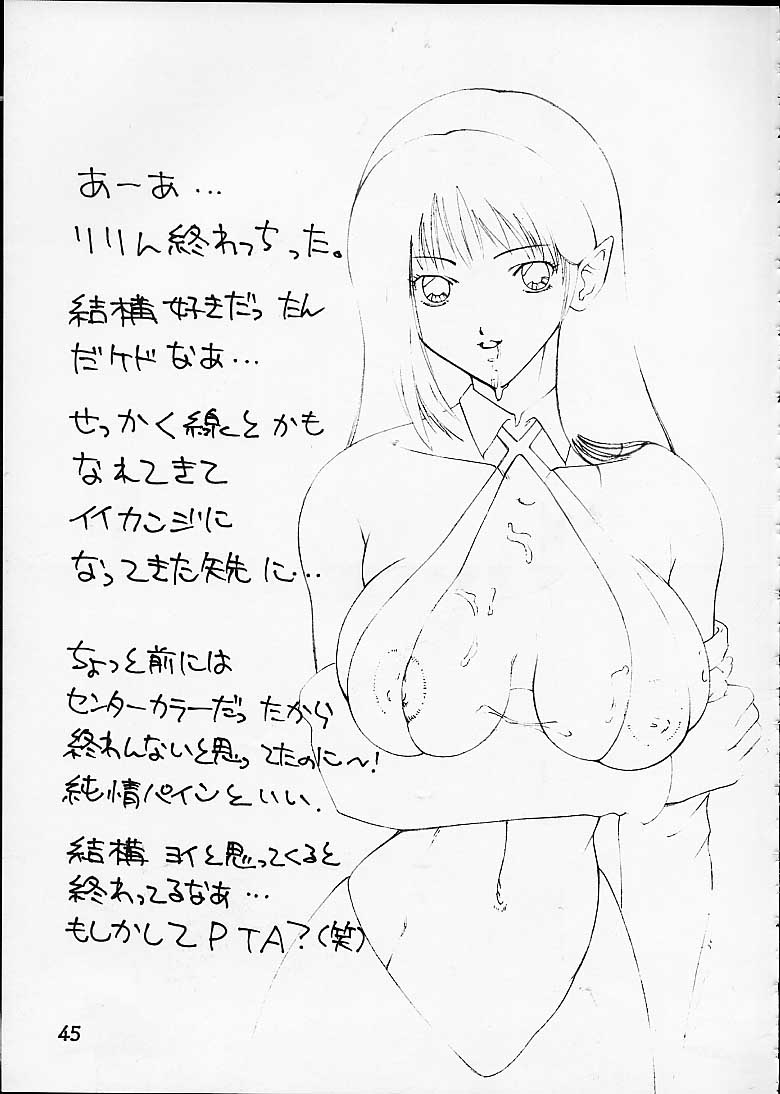 あーあ…
リリん終わっちった。
結構好きだったん
だケドなぁ…
せっかく線とかも
なれてきて
イイカンジに
なってきた矢先に…
ちょっと前には
センターカラーだったから
終わんないと思ってたのに～!
純情パインといい、
結構ヨイと思ってくると
終わってるなあ…
もしかしてPTA?(笑)
45